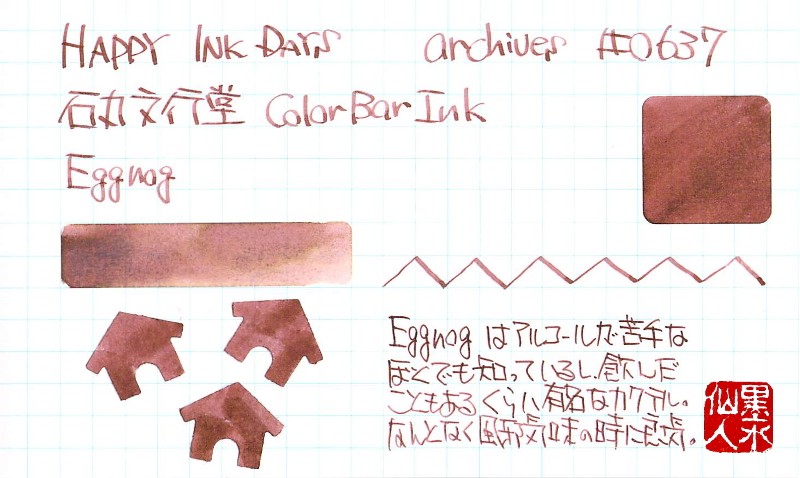 HAPPY INK DAYS archives #0637
石丸文行堂 Color Bar Ink
Eggnog
Eggnog はアルコールが苦手な
ほとでも知っているし、飲んだ
こともあるくらい有名なカクテル。
なんとなく風邪気味の時に元気。
墨水
仙人